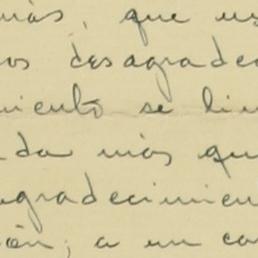 más, que us
os desagradec
miento se lim
da más que
gradecimien
ón, a un ca